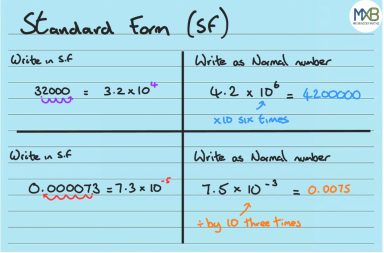 Standard Form (SF)
MXB
Write in S.f
32000 = 3.2 x 10⁴
Write as Normal number
4.2 x 10⁶ = 4200000
x10 six times
Write in S.f
0.000073 = 7.3 x 10⁻⁵
Write as Normal number
7.5 x 10⁻³ = 0.0075
÷ by 10 three times